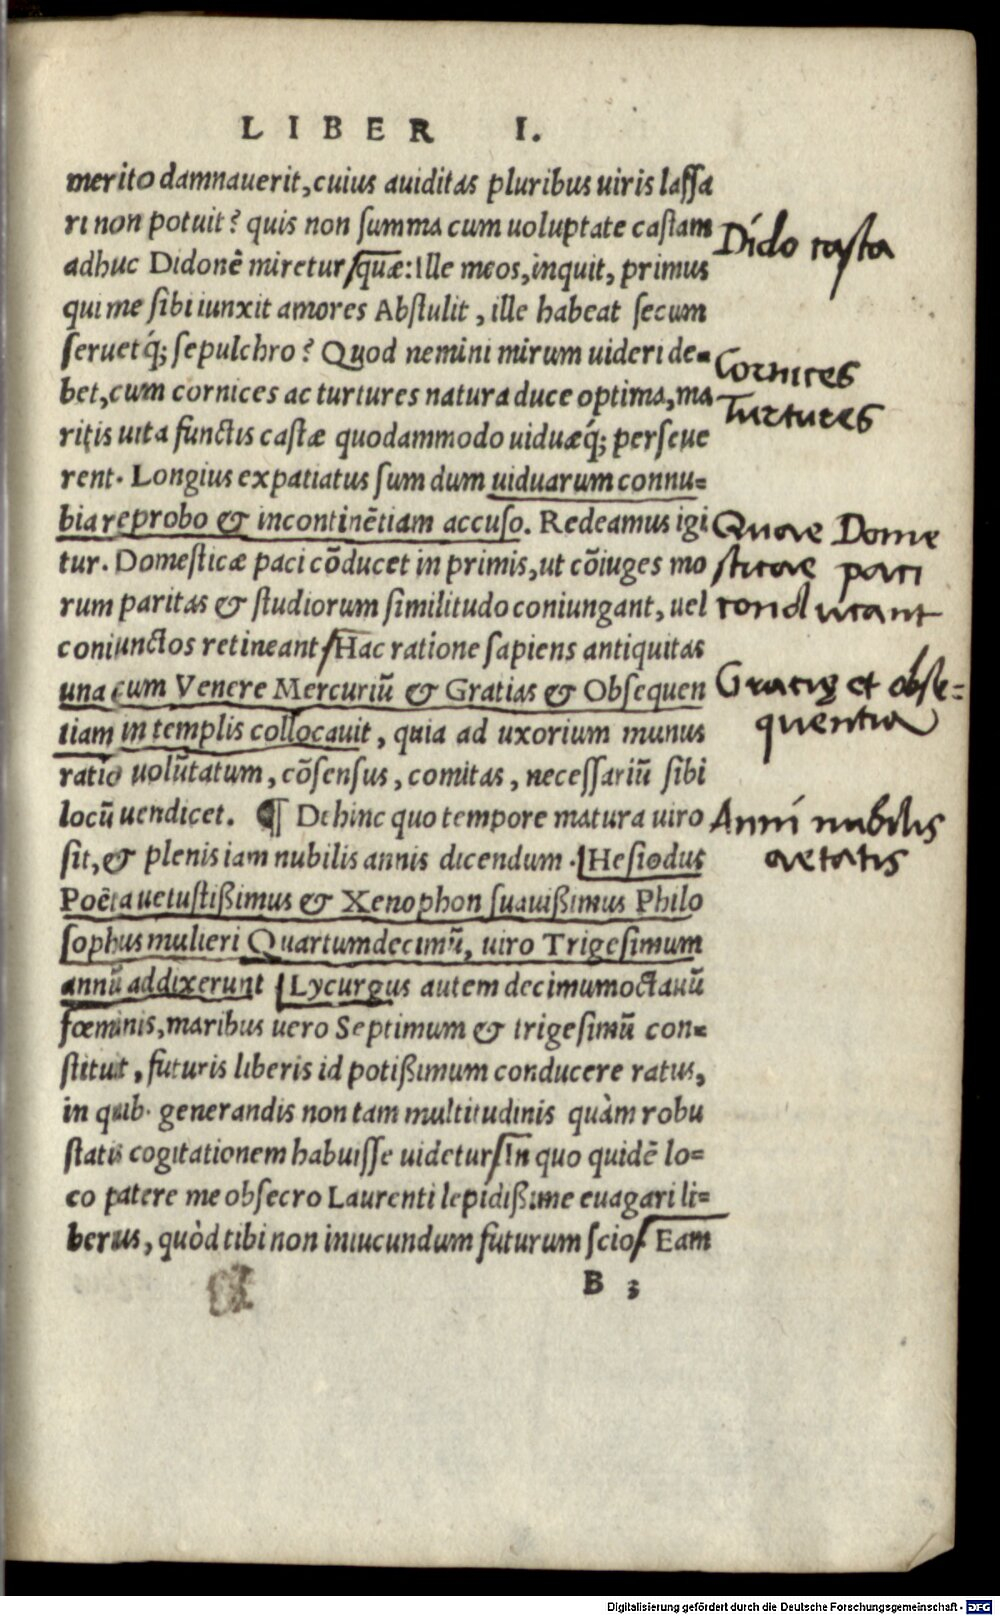 LIBER I.
merito damnauerit, cuius auiditas pluribus uiris lassa
ri non potuit? quis non summa cum uoluptate castam
Dido casta
adhuc Didonē miretur, quæ: Ille meos, inquit, primus
qui me sibi iunxit amores Abstulit, ille habeat secum
seruetq́; sepulchro? Quod nemini mirum uideri de-
Cornices
bet, cum cornices ac turtures natura duce optima, ma
Turtures
ritis uita functis castæ quodammodo uiduæq́; perseue
rent. Longius expatiatus sum dum uiduarum connu-
bia reprobo & incontinētiam accuso. Redeamus igi
Quae Dome
tur. Domesticæ paci cōducet in primis, ut cōiuges mo
sticae paci
rum paritas & studiorum similitudo coniungant, uel
conducant
coniunctos retineant. Hac ratione sapiens antiquitas
una cum Venere Mercuriū & Gratias & Obsequen
Gracię et obse-
tiam in templis collocauit, quia ad uxorium munus
quentia
ratio uolūtatum, cōsensus, comitas, necessariū sibi
locū uendicet. ¶ Dehinc quo tempore matura uiro
Anni nubilis
sit, & plenis iam nubilis annis dicendum. Hesiodus
aetatis
Poëta uetustißimus & Xenophon suauißimus Philo
sophus mulieri Quartumdecimū, uiro Trigesimum
annū addixerunt. Lycurgus autem decimumoctauū
fœminis, maribus uero Septimum & trigesimū con-
stituit, futuris liberis id potißimum conducere ratus,
in quib. generandis non tam multitudinis quàm robu
statis cogitationem habuisse uidetur. In quo quidē lo-
co patere me obsecro Laurenti lepidißime euagari li-
berius, quòd tibi non iniucundum futurum scio. Eam
B 3
Digitalisierung gefördert durch die Deutsche Forschungsgemeinschaft - DFG